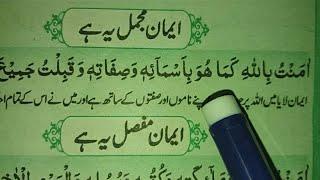 ایمان مجمل یہ ہے
اٰمَنْتُ بِاللّٰهِ كَمَا هُوَ بِاَسْمَآئِهٖ وَصِفَاتِهٖ وَقَبِلْتُ جَمِيْعَ
ایمان لایا میں اللہ پر نے ناموں اور صفتوں کے ساتھ ہے اور میں نے اس کے تمام
ایمان مفصل یہ ہے